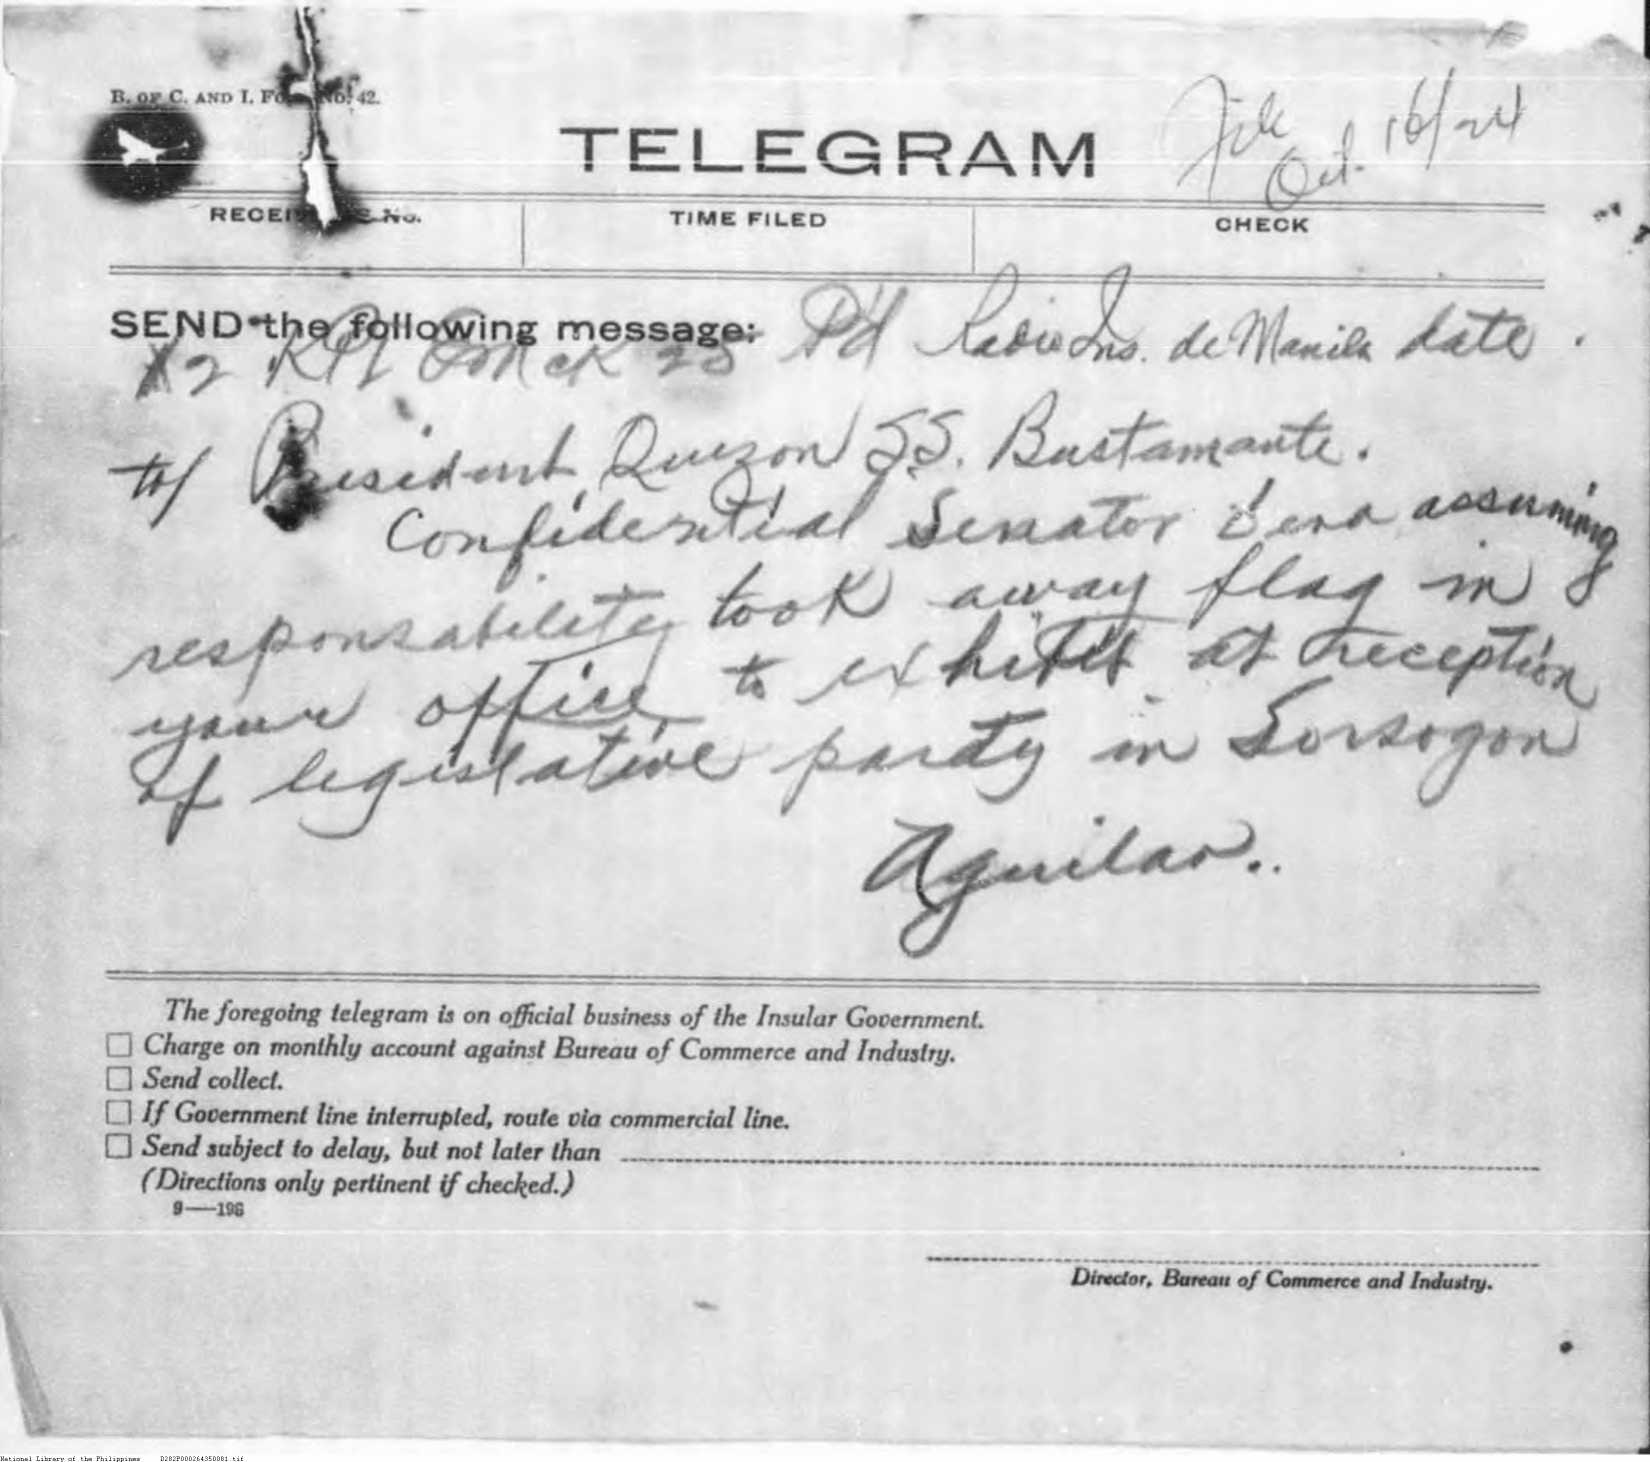 B. OF C. AND I. No. 42.
TELEGRAM
File
Oct. 16/24
RECEI No.
TIME FILED
CHECK
SEND the following message:
CK 28 Pd Radio Ins. de Manila date.
to/ President Quezon SS. Bustamante.
Confidential Senator Vera assuming
responsability took away flag in
your office to exhibit at reception
of legislative party in Sorsogon
Aguilar..
The foregoing telegram is on official business of the Insular Government.
☐ Charge on monthly account against Bureau of Commerce and Industry.
☐ Send collect.
☐ If Government line interrupted, route via commercial line.
☐ Send subject to delay, but not later than
(Directions only pertinent if checked.)
9—196
Director, Bureau of Commerce and Industry.
National Library of the Philippines D282P000264350081.tif